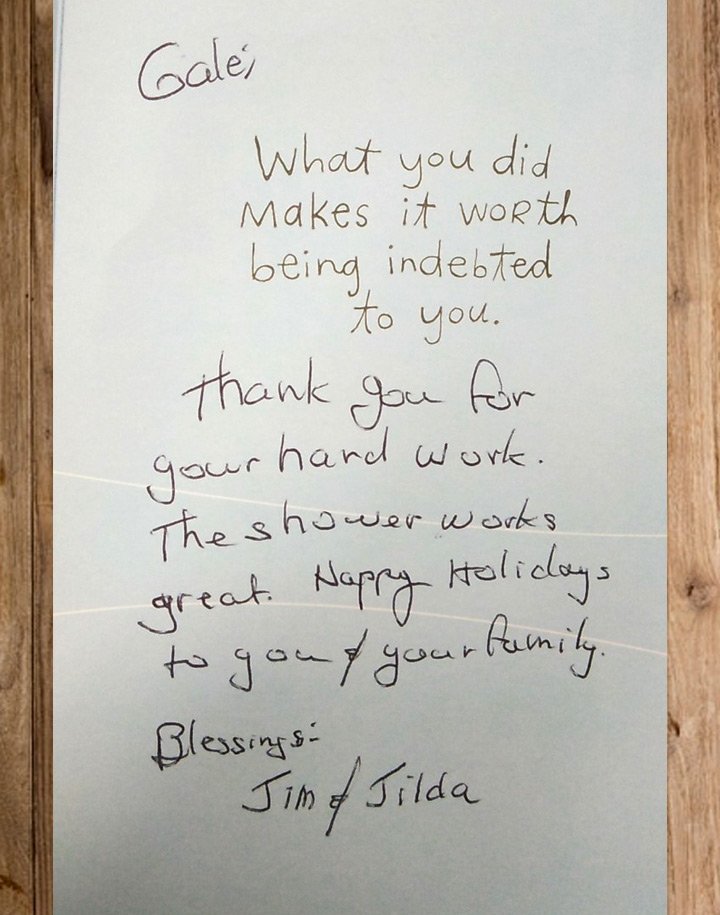 Gale,
What you did
Makes it woRth
being indebted
to you.
Thank you for
your hard work.
The shower works
great. Happy Holidays
to you & your family.
Blessings:
Jim & Jilda